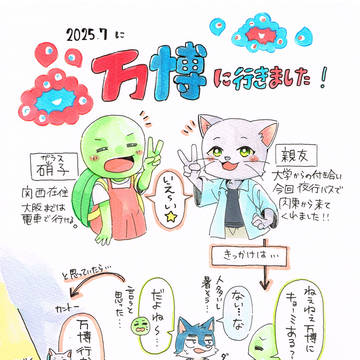 2025.7に
万博に行きました!
ガラス
硝子
関西在住
大阪までは
電車で行ける。
いえ〜い
親友
大学からの付き合い
今回 夜行バスで
関東から来て
くれました!!
きっかけは…
ねぇねぇ万博に
キョーミある?
ない…な
人多いし
暑そう…
だよね〜…
言うと
思った…
と思っていたら…
万博行